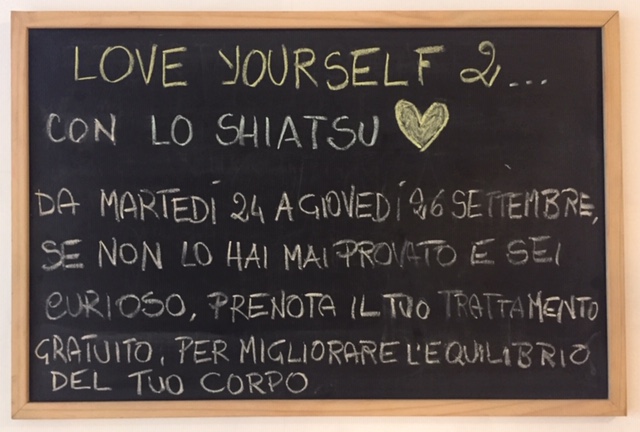 LOVE YOURSELF 2...
CON LO SHIATSU
DA MARTEDÍ 24 A GIOVEDÍ 26 SETTEMBRE,
SE NON LO HAI MAI PROVATO E SEI
CURIOSO, PRENOTA IL TUO TRATTAMENTO
GRATUITO, PER MIGLIORARE L'EQUILIBRIO
DEL TUO CORPO